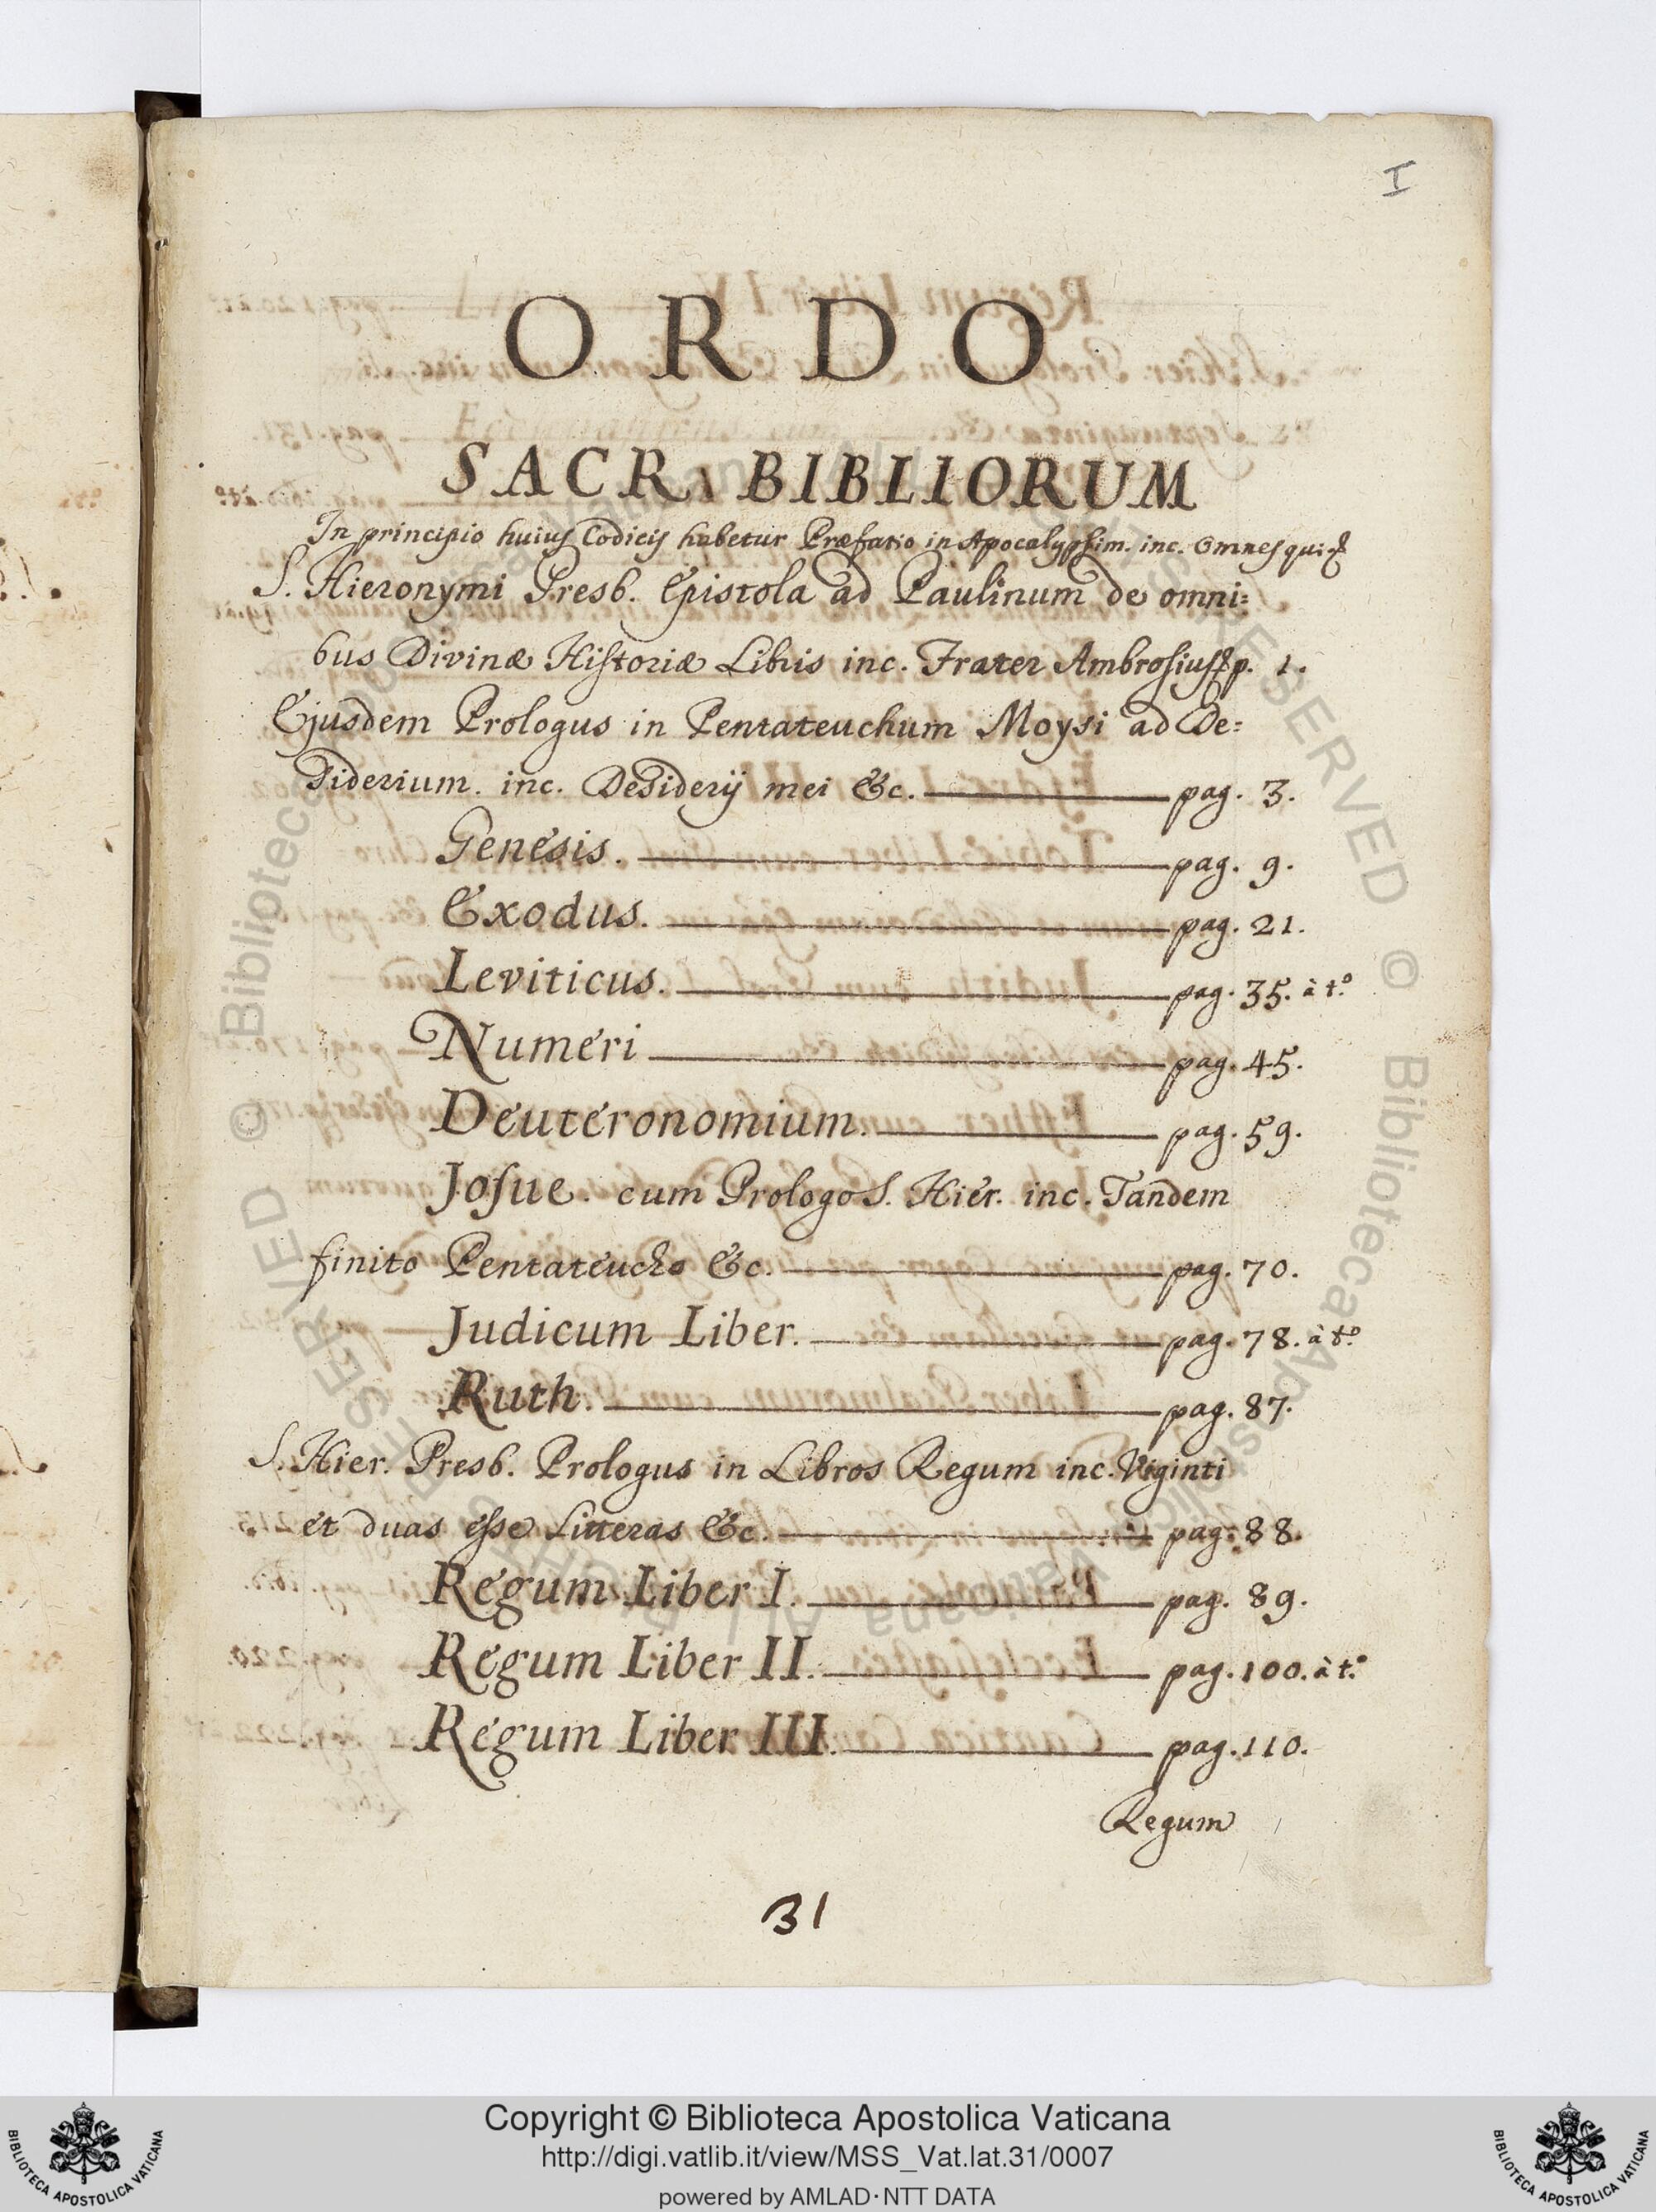 I
ORDO
SACRA BIBLIORUM
In principio huius Codicis habetur Præfatio in Apocalypsim. inc. Omnes qui &
S. Hieronymi Presb. Epistola ad Paulinum de omni=
bus Divinæ Historiæ Libris inc. Frater Ambrosius & p. 1.
Ejusdem Prologus in Pentateuchum Moysi ad De=
siderium. inc. Desiderij mei &c. pag. 3.
Genesis. pag. 9.
Exodus. pag. 21.
Leviticus. pag. 35. à t.º
Numeri pag. 45.
Deuteronomium. pag. 59.
Josue. cum Prologo S. Hier. inc. Tandem
finito Pentateucho &c. pag. 70.
Judicum Liber. pag. 78. à t.º
Ruth. pag. 87.
S. Hier. Presb. Prologus in Libros Regum inc. Viginti
et duas esse Litteras &c. pag. 88.
Regum Liber I. pag. 89.
Regum Liber II. pag. 100. à t.º
Regum Liber III. pag. 110.
Regum
31
Copyright © Biblioteca Apostolica Vaticana
http://digi.vatlib.it/view/MSS_Vat.lat.31/0007
powered by AMLAD·NTT DATA
BIBLIOTECA APOSTOLICA VATICANA
BIBLIOTECA APOSTOLICA VATICANA